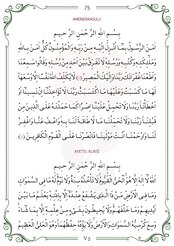 75
AMENERRASULU
بِسْمِ اللّٰهِ الرَّحْمٰنِ الرَّحِيمِ
اٰمَنَ الرَّسُولُ بِمَا اُنْزِلَ اِلَيْهِ مِنْ رَبِّهِ وَالْمُؤْمِنُونَ كُلٌّ اٰمَنَ بِاللّٰهِ
وَمَلٰئِكَتِهِ وَكُتُبِهِ وَرُسُلِهِ لَا نُفَرِّقُ بَيْنَ اَحَدٍ مِنْ رُسُلِهِ وَقَالُوا سَمِعْنَا
وَاَطَعْنَا غُفْرَانَكَ رَبَّنَا وَاِلَيْكَ الْمَصِيرُ لَا يُكَلِّفُ اللّٰهُ نَفْسًا اِلَّا وُسْعَهَا
لَهَا مَا كَسَبَتْ وَعَلَيْهَا مَا اكْتَسَبَتْ رَبَّنَا لَا تُؤَاخِذْنَا اِنْ نَسِينَا اَوْ
اَخْطَأْنَا رَبَّنَا وَلَا تَحْمِلْ عَلَيْنَا اِصْرًا كَمَا حَمَلْتَهُ عَلَى الَّذِينَ مِنْ
قَبْلِنَا رَبَّنَا وَلَا تُحَمِّلْنَا مَا لَا طَاقَةَ لَنَا بِهِ وَاعْفُ عَنَّا وَاغْفِرْ
لَنَا وَارْحَمْنَا اَنْتَ مَوْلٰينَا فَانْصُرْنَا عَلَى الْقَوْمِ الْكَافِرِينَ
AYETEL KURSİ
بِسْمِ اللّٰهِ الرَّحْمٰنِ الرَّحِيمِ
اَللّٰهُ لَا اِلٰهَ اِلَّا هُوَ الْحَيُّ الْقَيُّومُ لَا تَأْخُذُهُ سِنَةٌ وَلَا نَوْمٌ لَهُ مَا فِي السَّمٰوَاتِ
وَمَا فِي الْاَرْضِ مَنْ ذَا الَّذِي يَشْفَعُ عِنْدَهُ اِلَّا بِاِذْنِهِ يَعْلَمُ مَا بَيْنَ
اَيْدِيهِمْ وَمَا خَلْفَهُمْ وَلَا يُحِيطُونَ بِشَيْءٍ مِنْ عِلْمِهِ اِلَّا بِمَا شَاءَ
وَسِعَ كُرْسِيُّهُ السَّمٰوَاتِ وَالْاَرْضَ وَلَا يَؤُدُهُ حِفْظُهُمَا وَهُوَ الْعَلِيُّ الْعَظِيمُ
٧٥